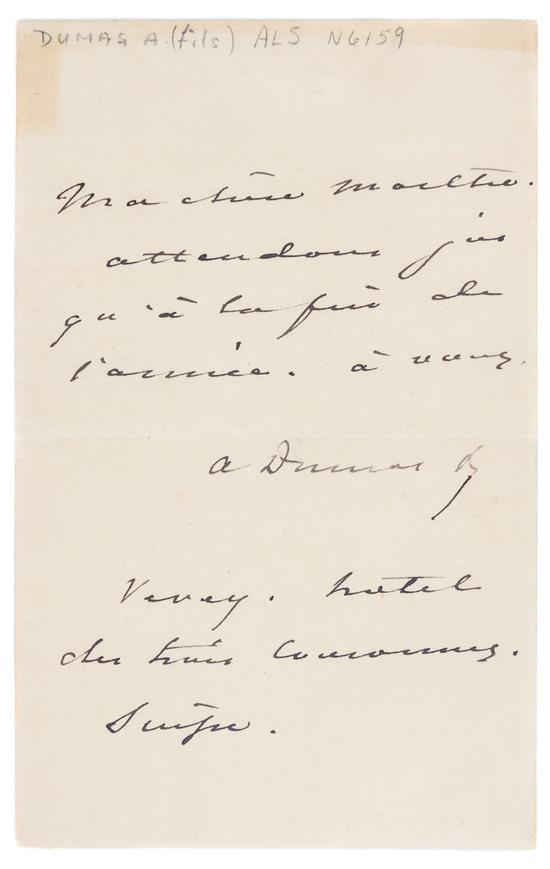 DUMAS A. (fils) ALS N6159
Ma chère maître.
attendons jus
qu'à la fin de
l'année. à vous.
A Dumas f
Vevey. hotel
des trois Couronnes.
Suisse.